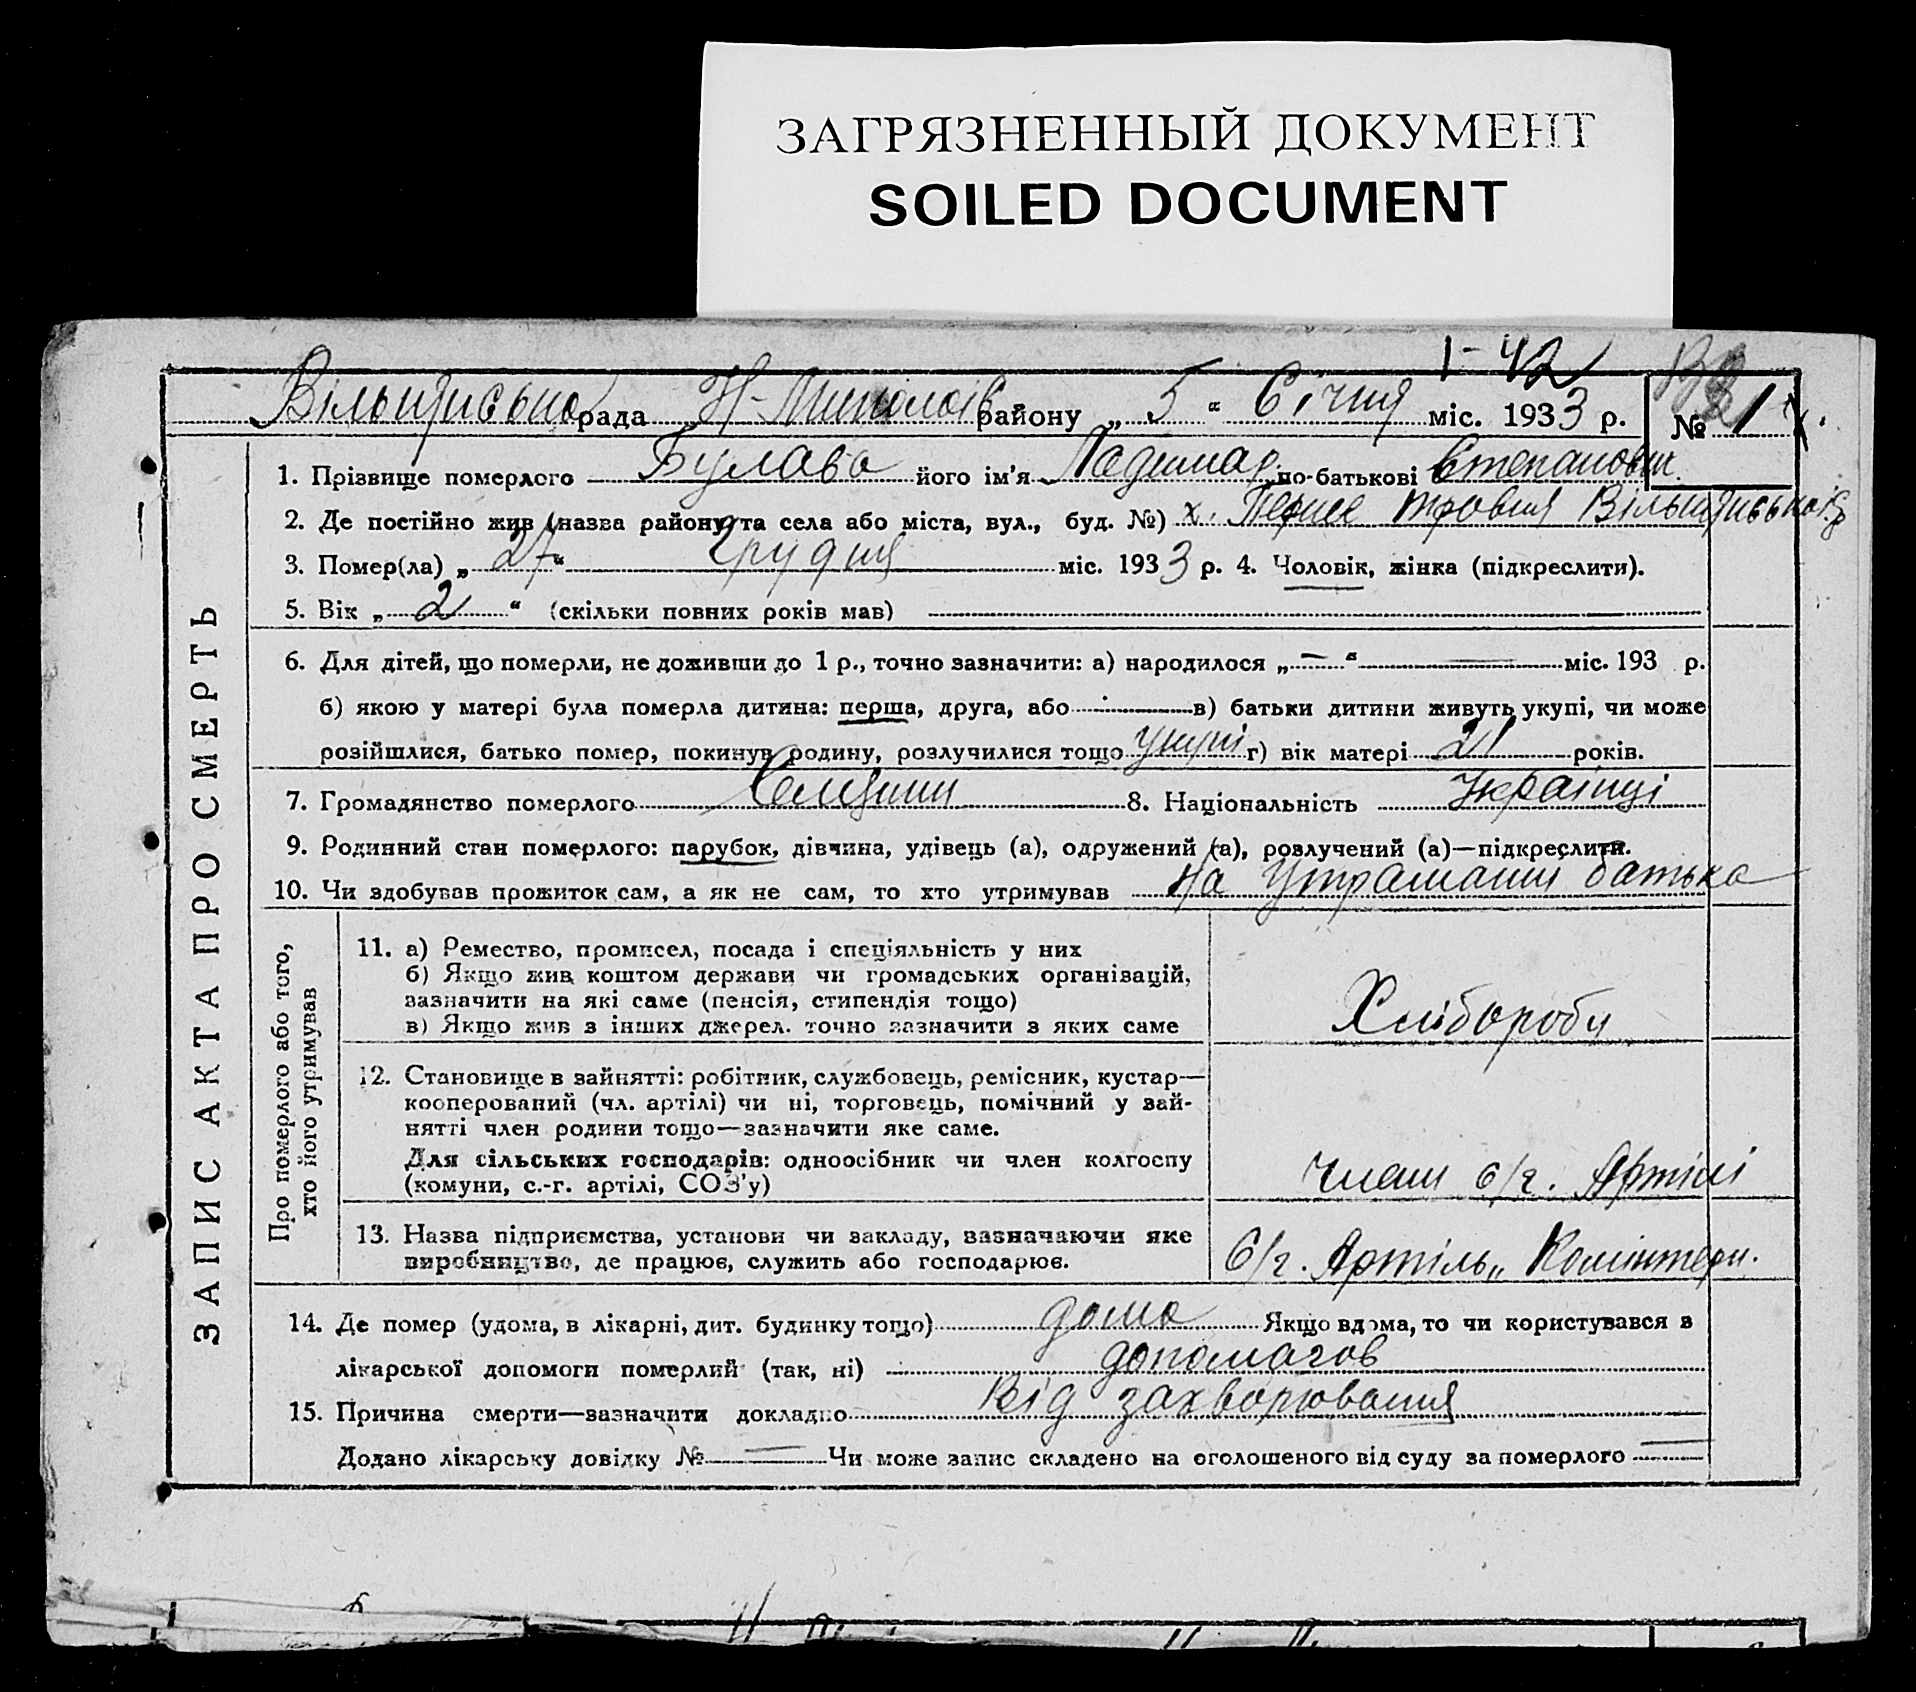 ЗАГРЯЗНЕННЫЙ ДОКУМЕНТ
SOILED DOCUMENT
1-42
рада Н-Миколаїв району „ 5 “ Січня міс. 1933 р. № 1
ЗАПИС АКТА ПРО СМЕРТЬ
1. Прізвище померлого Булава його ім'я по-батькові Степанович
2. Де постійно жив (назва району та села або міста, вул., буд. №) х. Перше травня
3. Помер(ла) „ 27 “ грудня міс. 1933 р. 4. Чоловік, жінка (підкреслити).
5. Вік „ 2 “ (скільки повних років мав)
6. Для дітей, що померли, не доживши до 1 р., точно зазначити: а) народилося „ — “ — міс. 193 р.
б) якою у матері була померла дитина: перша, друга, або — в) батьки дитини живуть укупі, чи може
розійшлися, батько помер, покинув родину, розлучилися тощо укупі г) вік матері 21 років.
7. Громадянство померлого 8. Національність Українці
9. Родинний стан померлого: парубок, дівчина, удівець (а), одружений (а), розлучений (а)—підкреслити.
10. Чи здобував прожиток сам, а як не сам, то хто утримував На утриманні батька
Про померлого або того,
хто його утримував
11. а) Ремество, промисел, посада і спеціяльність у них
б) Якщо жив коштом держави чи громадських організацій,
зазначити на які саме (пенсія, стипендія тощо)
в) Якщо жив з інших джерел. точно зазначити з яких саме
Хлібороби
12. Становище в зайнятті: робітник, службовець, ремісник, кустар—
кооперований (чл. артілі) чи ні, торговець, помічний у зай-
нятті член родини тощо—зазначити яке саме.
Для сільських господарів: одноосібник чи член колгоспу
(комуни, с.-г. артілі, СОЗ'у)
Члени с/г. Артілі
13. Назва підприємства, установи чи закладу, зазначаючи яке
виробництво, де працює, служить або господарює.
С/г. Артіль „ Комінтерн.
14. Де помер (удома, в лікарні, дит. будинку тощо) дома Якщо вдома, то чи користувався в
лікарської допомоги померлий (так, ні) допомагав
15. Причина смерти—зазначити докладно Від захворювання
Додано лікарську довідку № — Чи може запис складено на оголошеного від суду за померлого —